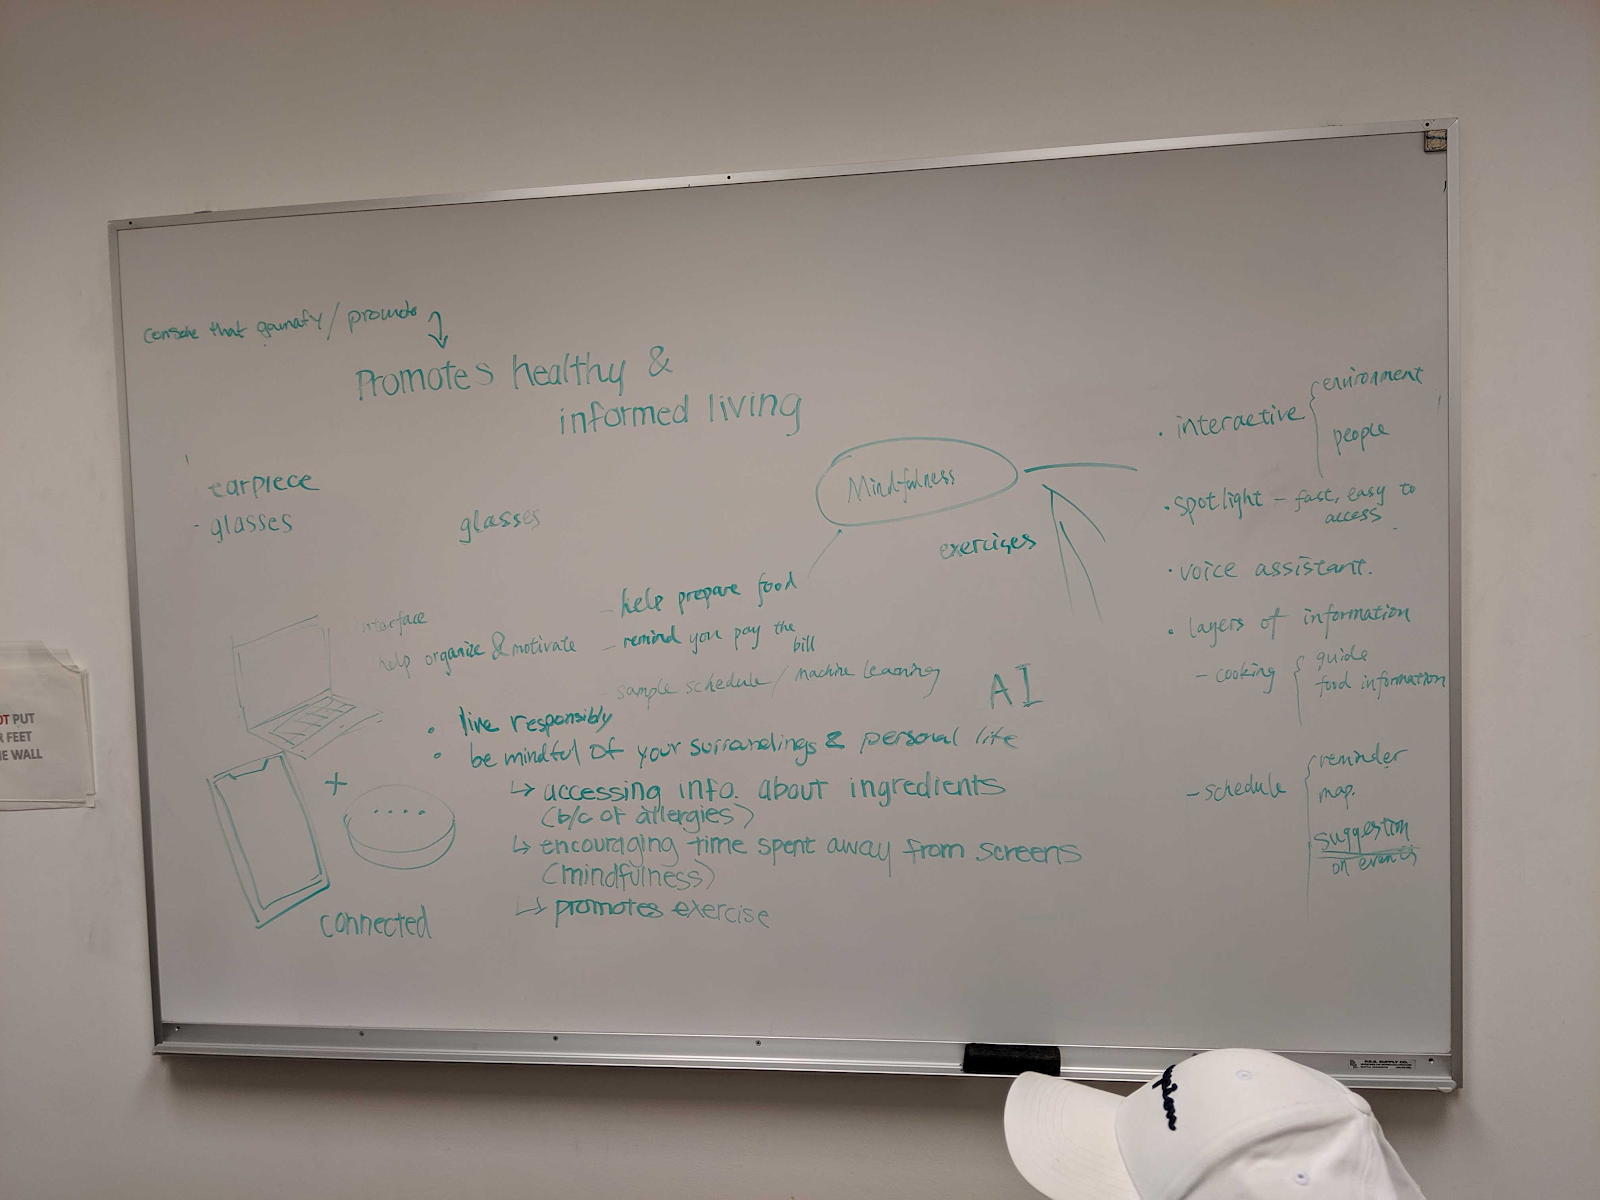 console that gamafy / promote
Promotes healthy &
informed living
earpiece
- glasses
glasses
Mindfulness
exercises
interface
help organize & motivate
- help prepare food
- remind you pay the
bill
- sample schedule / machine learning
AI
• live responsibly
• be mindful of your surrondings & personal life
↳ accessing info. about ingredients
(b/c of allergies)
↳ encouraging time spent away from screens
(mindfulness)
↳ promotes exercise
+
connected
• interactive
environment
people
• spotlight - fast, easy to
access
• voice assistant.
• layers of information
- cooking
guide
food information
- schedule
reminder
map.
suggestion
on events
OT PUT
R FEET
HE WALL